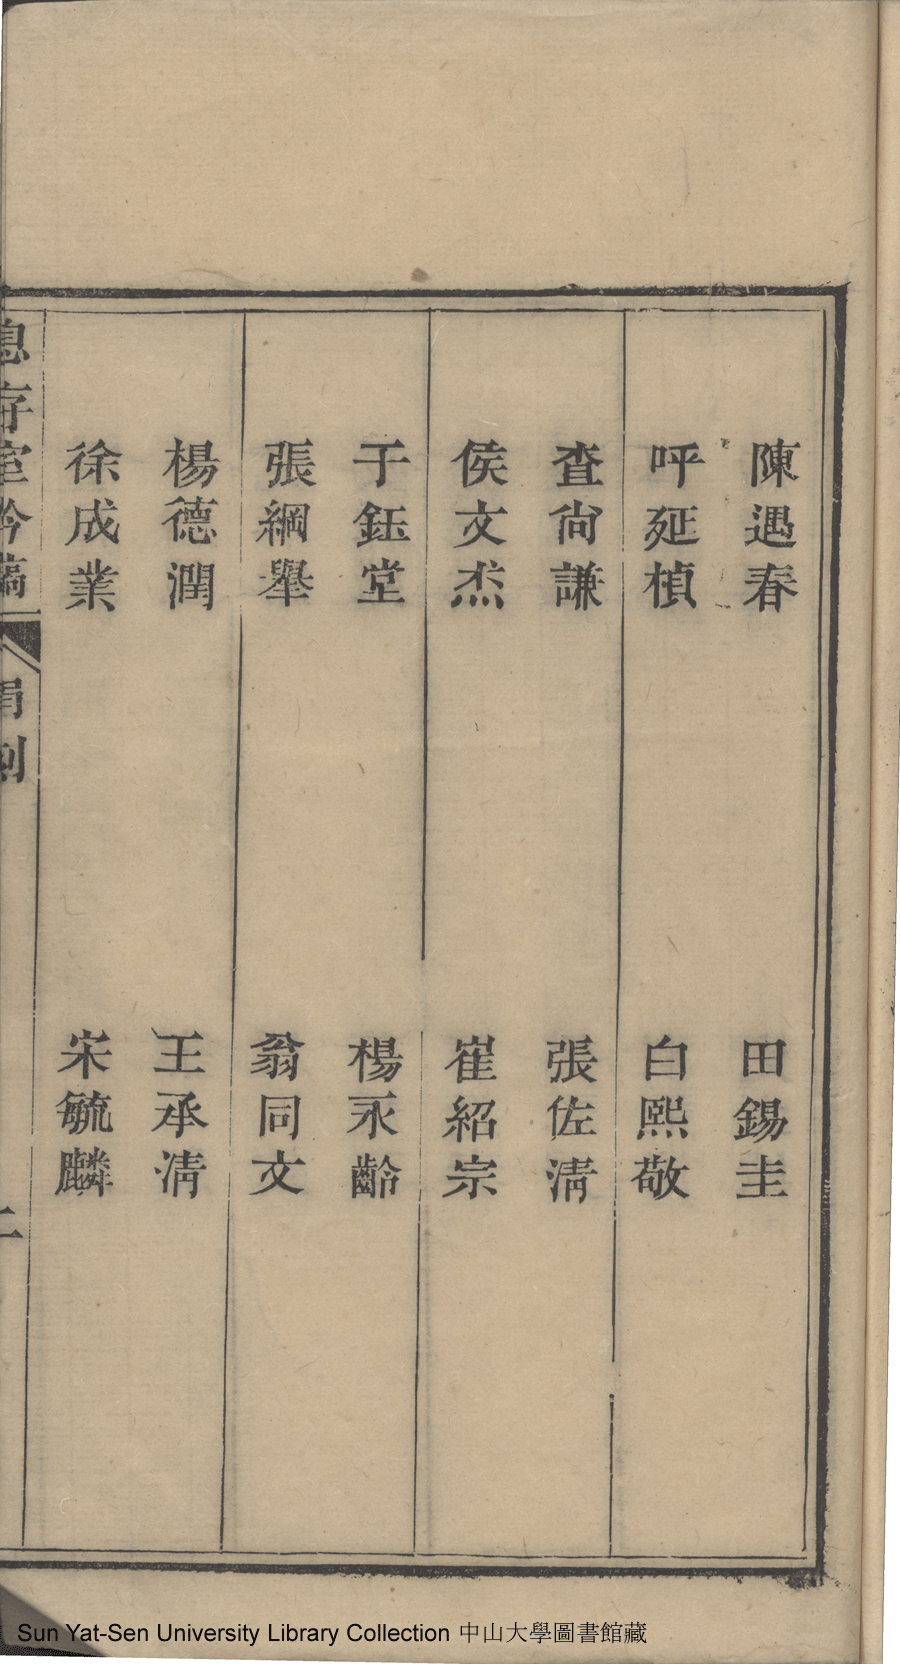 陳遇春　田錫圭
呼延楨　白熙敬
查尙謙　張佐清
侯文杰　崔紹宗
于鈺堂　楊永齡
張綱舉　翁同文
楊德潤　王承清
徐成業　宋毓麟
息存室吟稿　捐刻
Sun Yat-Sen University Library Collection 中山大學圖書館藏